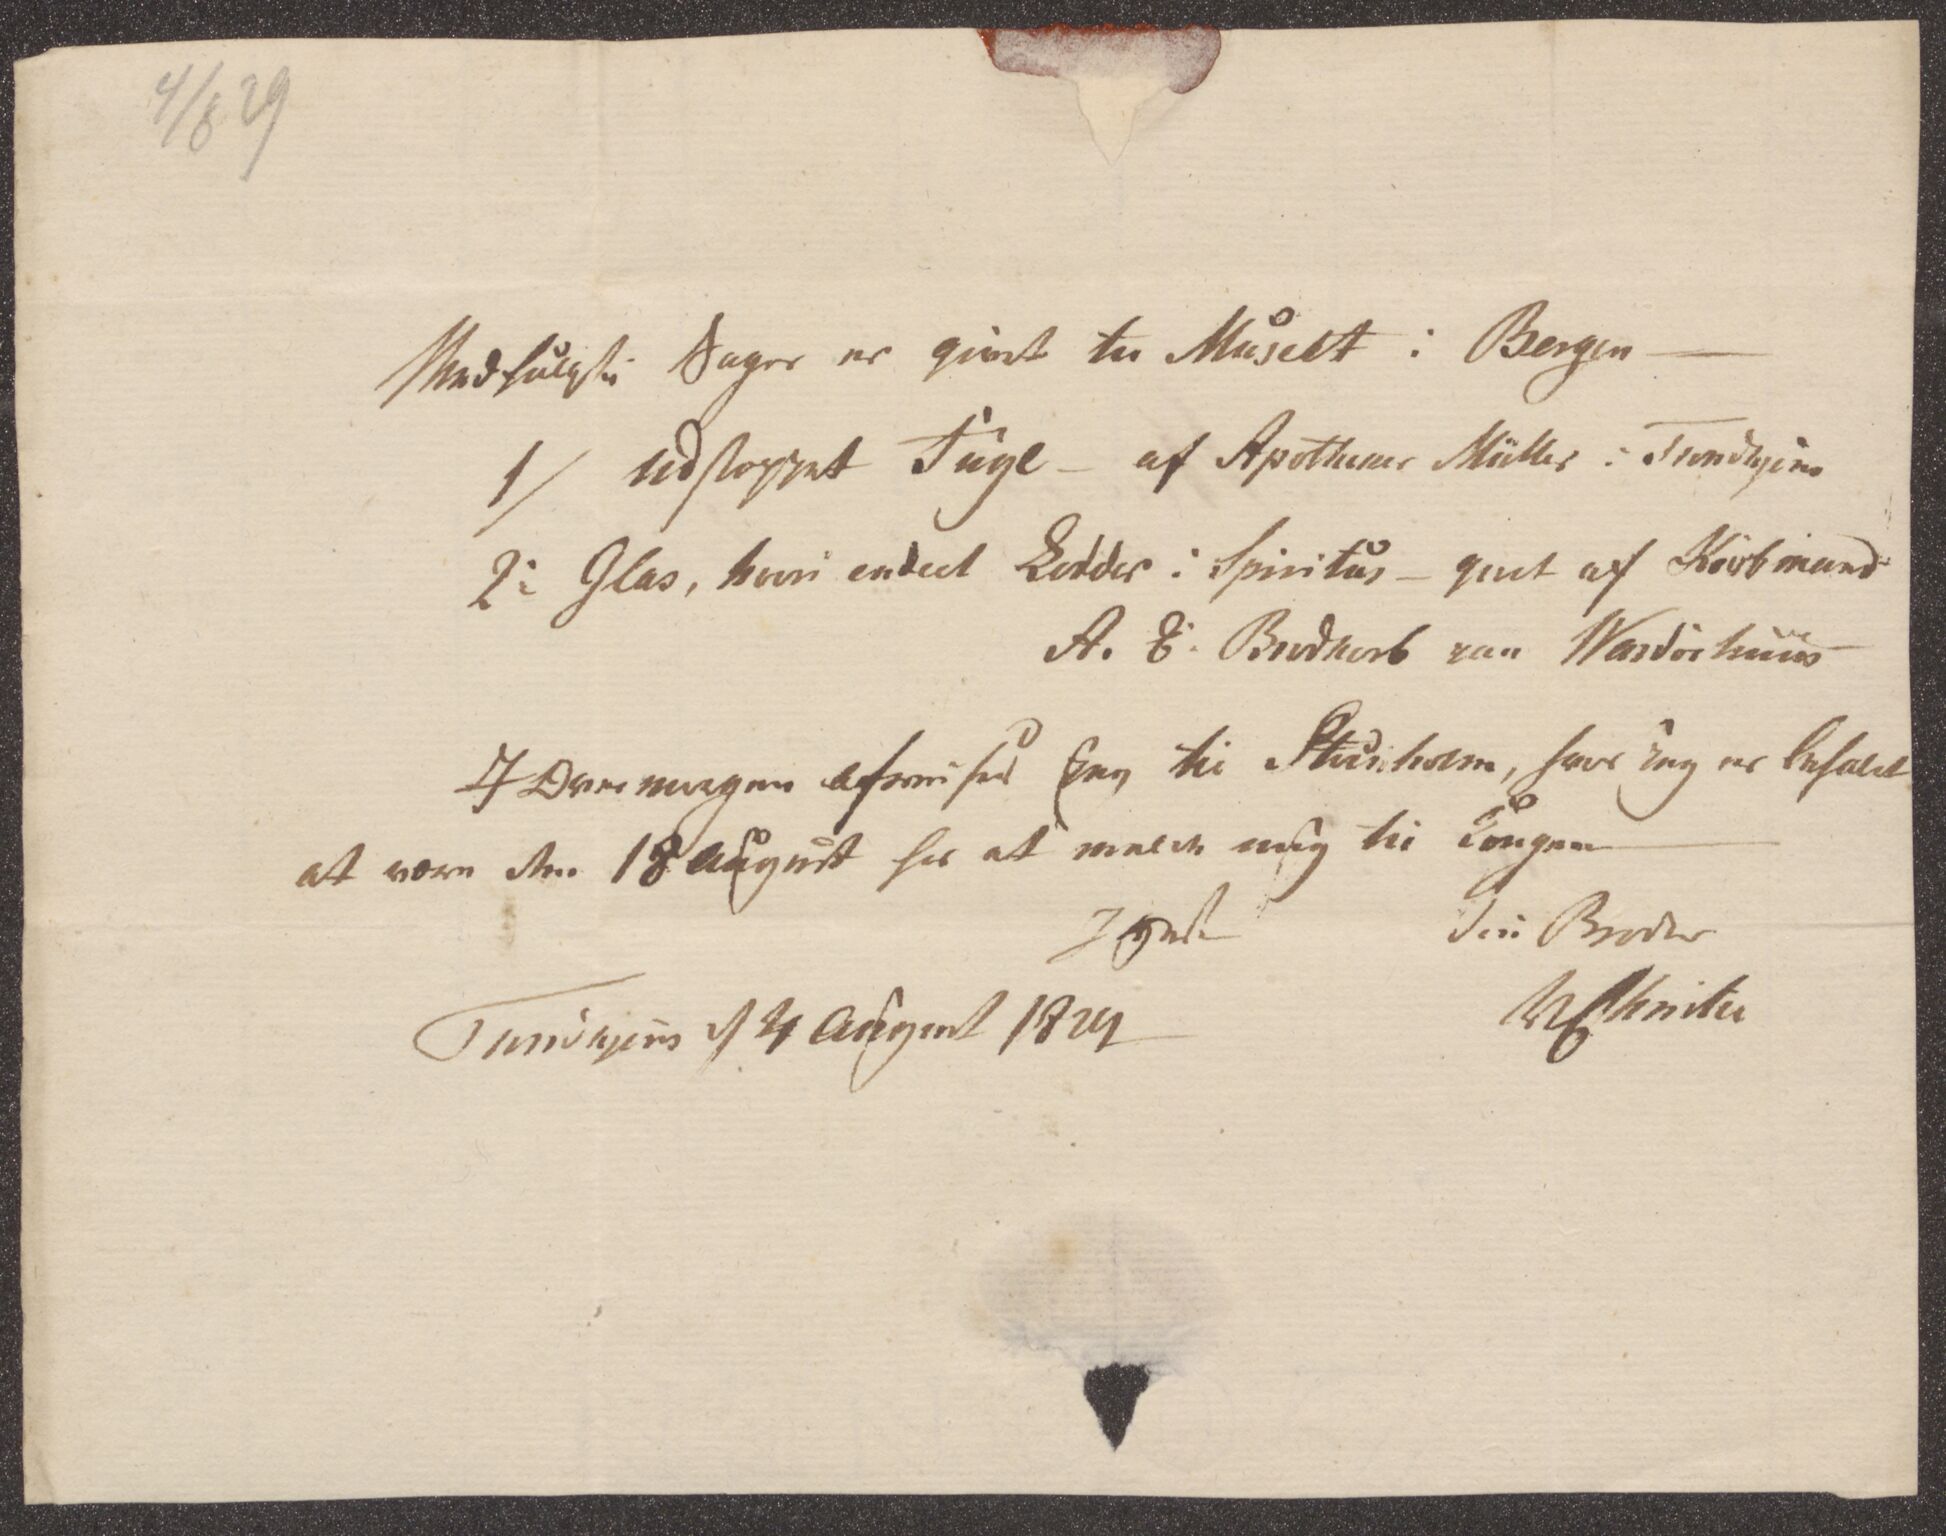 4/8 29
Medfulgte Sager er givet til Museet i Bergen —
1/ udstoppet Fugl – af Apotheker Müller i Trondhjem
2: Glas, hvori endeel Edder i Spiritus – givet af Kiöbmand
A. E. Brodkorb paa Wardöehuus
I Overmorgen afreiser jeg til Stockholm, hvor jeg er befalet
at være den 18 August for at melde mig til Kongen —
Din Broder
Trondhjem d 4 August 1829